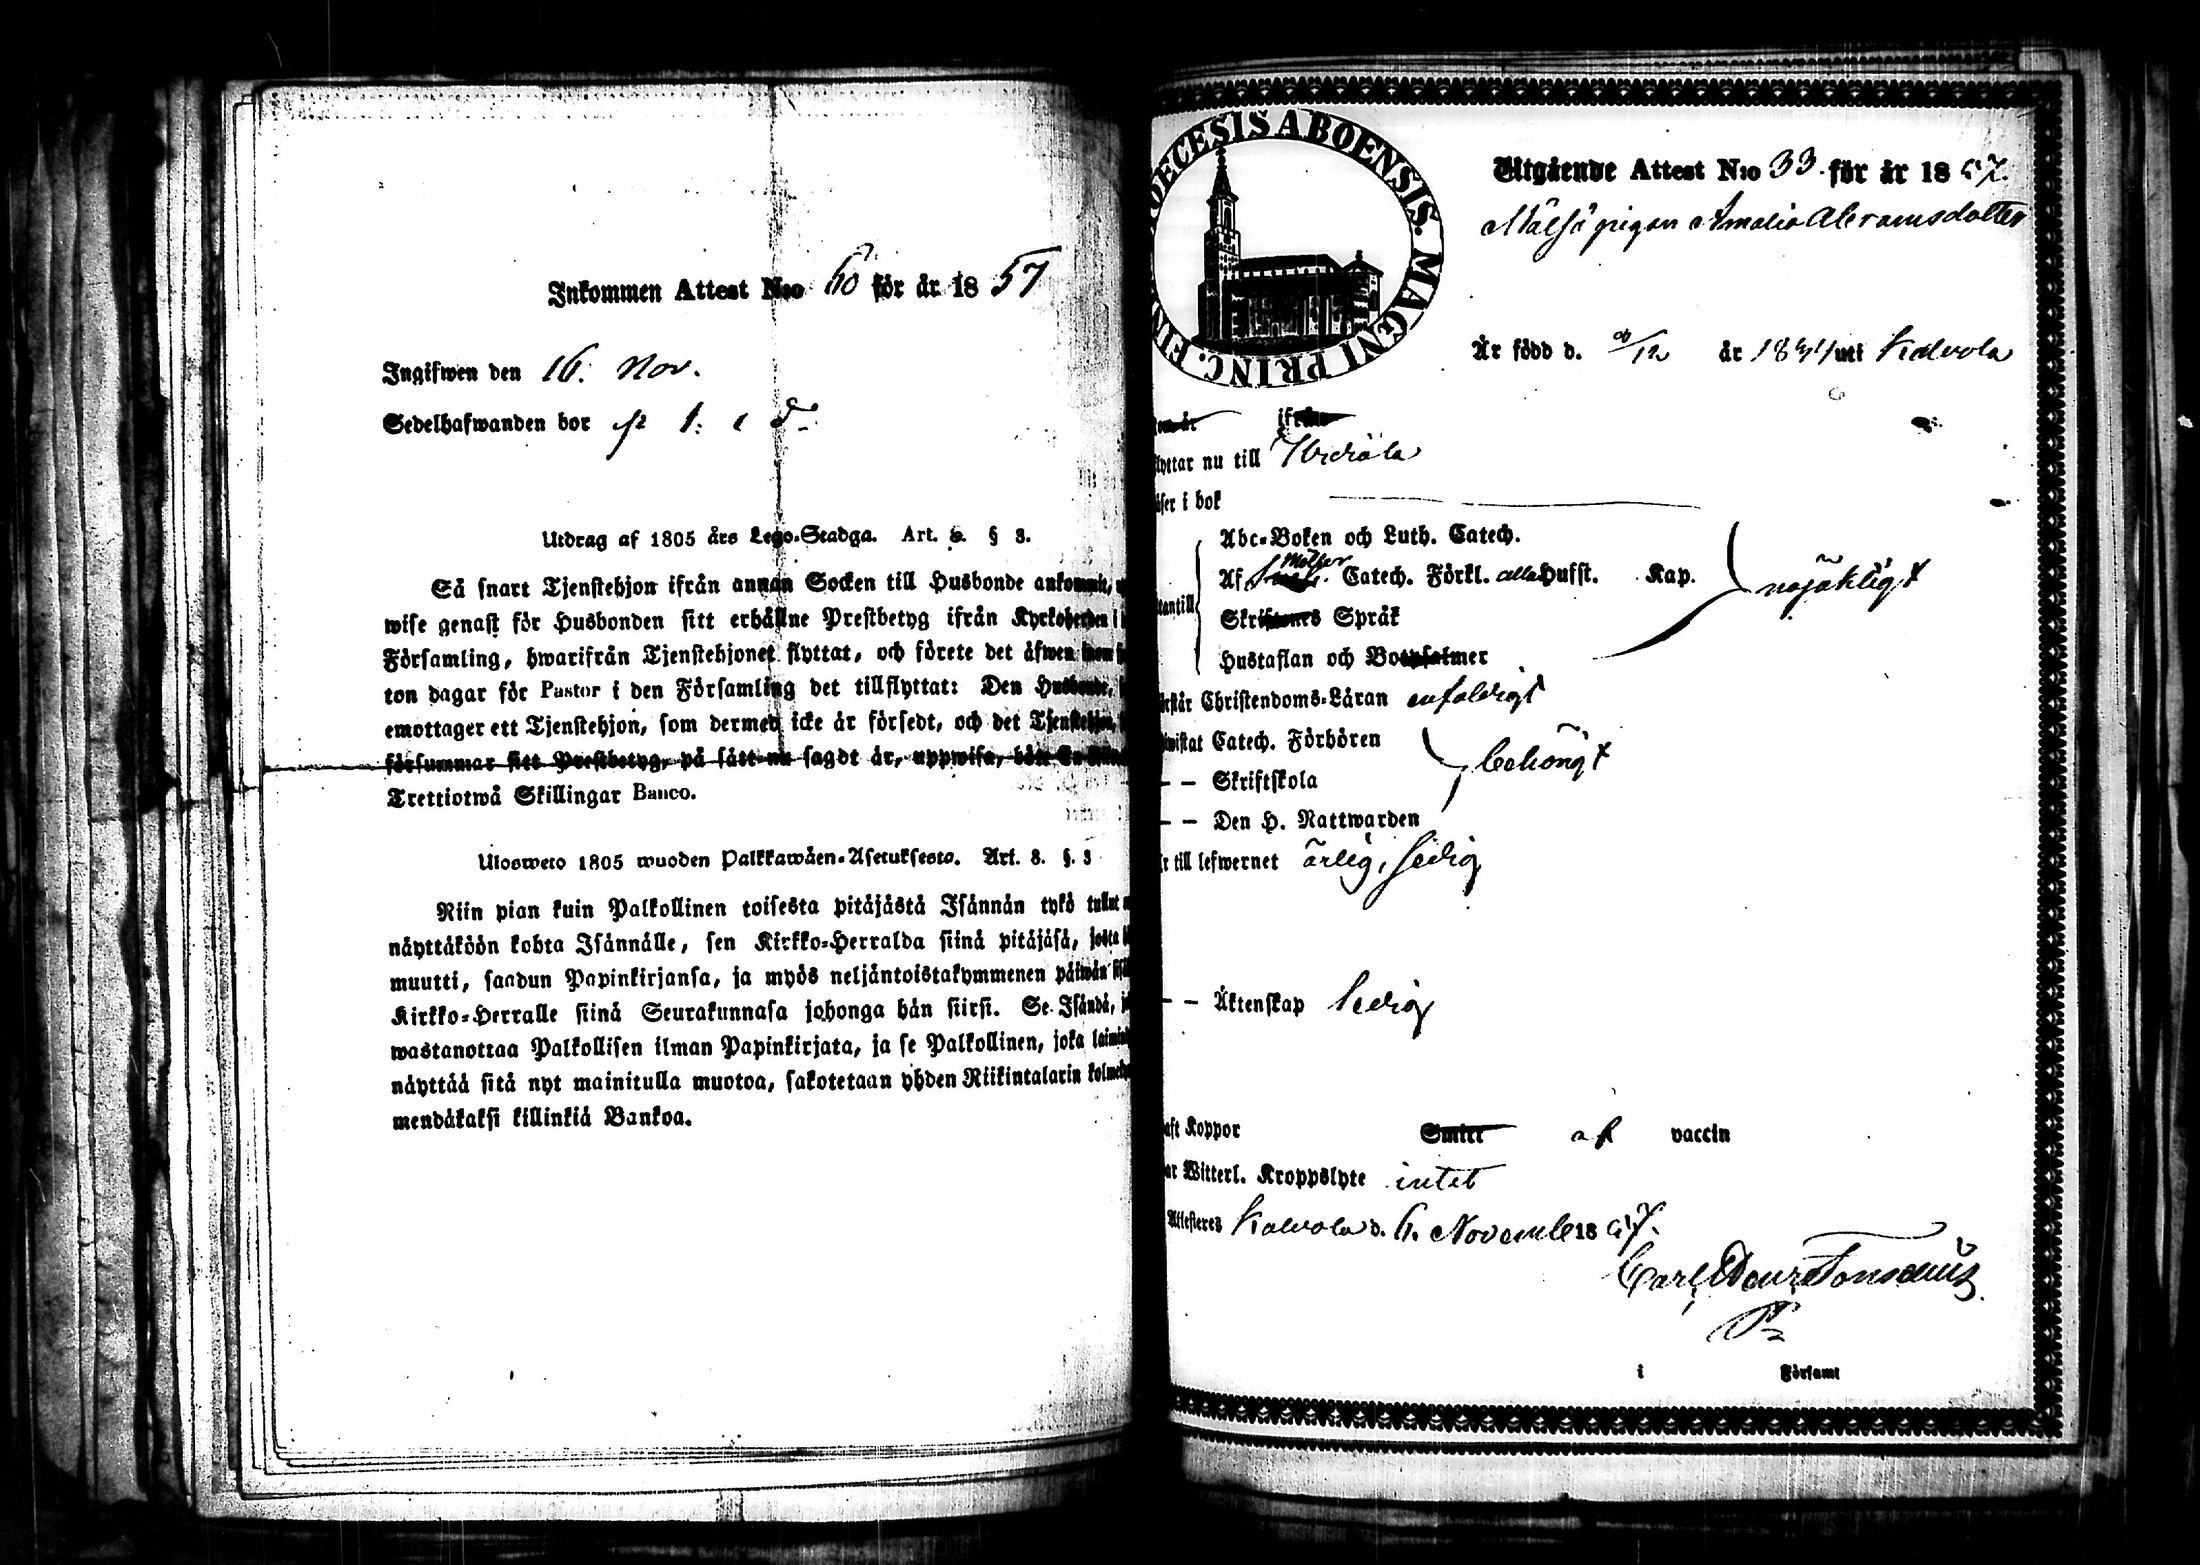 Inkommen Attest N:o 60 för år 1857
Ingifwen den 16. Nov.
Sedelhafwanden bor
Utdrag af 1805 års Lego-Stadga. Art. 8. § 3.
Så snart Tjenstehjon ifrån annan Socken till Husbonde ankommit,
wise genast för Husbonden sitt erhållne Prestbetyg ifrån Kyrkoherden i
Församling, hwarifrån Tjenstehjonet flyttat, och förete det äfwen inom
ton dagar för Pastor i den Församling det tillflyttat: Den Husbonde,
emottager ett Tjenstehjon, som dermed icke är försedt, och det Tjenstehjon,
försummar sitt Prestbetyg, på sätt nu sagdt är, uppwisa, böte En
Trettiotwå Skillingar Banco.
Ulosweto 1805 wuoden Palkkawäen-Asetuksesta. Art. 8. §. 3
Niin pian kuin Palkollinen toisesta pitäjästä Isännän tykö tullut
näyttäköön kohta Isännälle, sen Kirkko-Herralda siinä pitäjäsä, josta
muutti, saadun Papinkirjansa, ja myös neljäntoistakymmenen päiwän
Kirkko-Herralle siinä Seurakunnasa johonga hän siirsi. Se Isändä,
wastanottaa Palkollisen ilman Papinkirjata, ja se Palkollinen, joka
näyttää sitä nyt mainitulla muotoa, sakotetaan yhden Riikintalarin
mendäkaksi killinkiä Bankoa.
DIOECESIS ABOENSIS. MAGNI PRINC. FIN
Utgående Attest N:o 33. för år 1857.
Mälsäpigan Amalia Abramsdotter
Är född d. /12 år 1834 uti Kalvola
ifrån
flyttar nu till Urdiala
läser i bok
Abc-Boken och Luth. Catech.
Af Möller Catech. Förkl. alla Hufst. Kap.
nöjaktigt
utantill
Skriftenes Språk
Hustaflan och Botpsalmer
förstår Christendoms-Läran enfaldigt
bewistat Catech. Förhören
behörigt
— — Skriftskola
— — Den H. Nattwarden
Är till lefwernet ärlig, sedig
— — Äktenskap ledig
haft Koppor Smitt af vaccin
har Witterl. Kroppslyte intet
Attesteres Kalvola d. 6. November 1857.
Carl
i Församl